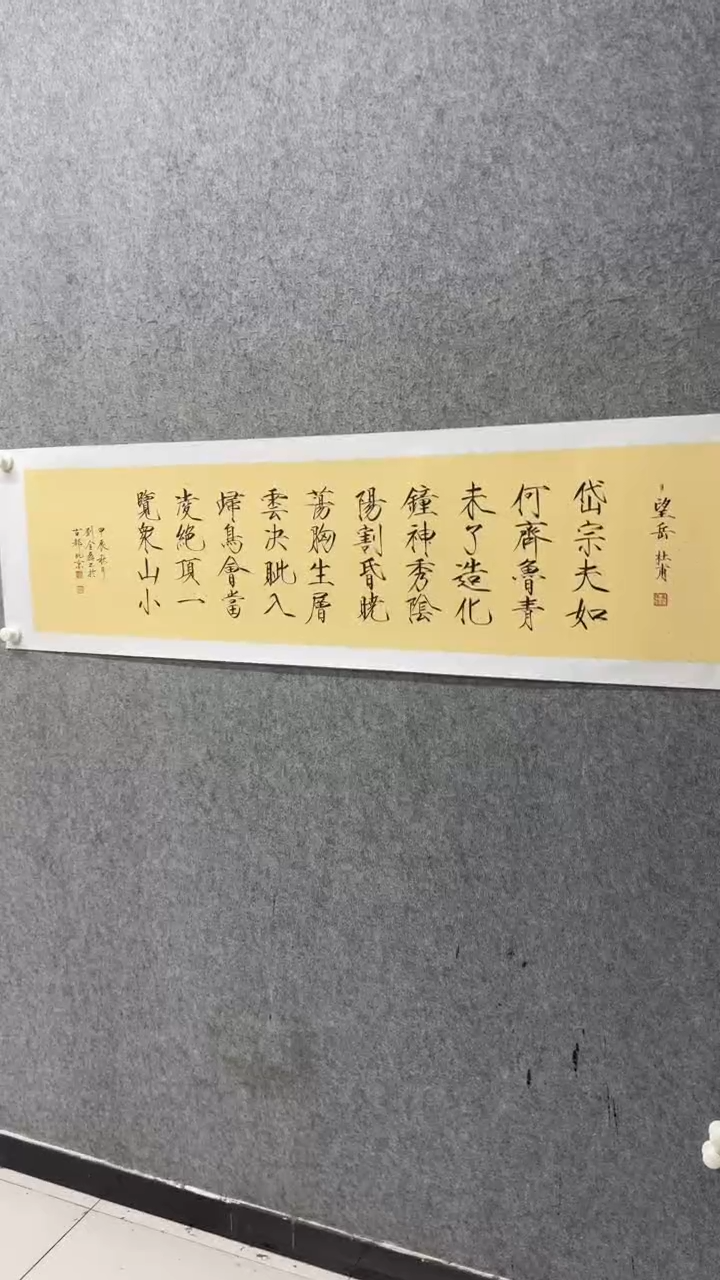 望岳 杜甫
岱宗夫如
何齊魯青
未了造化
鐘神秀陰
陽割昏曉
蕩胸生層
雲決眦入
歸鳥會當
凌絕頂一
覽衆山小
甲辰秋月
古都北京